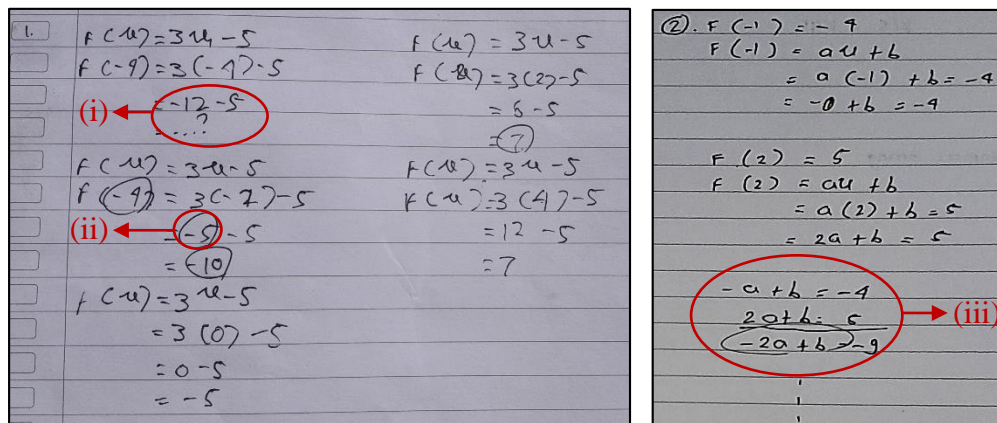 1.
F(x) = 3x - 5
F(-4) = 3(-4) - 5
(i)
= -12 - 5
= ....?
F(x) = 3x - 5
F(-4) = 3(-2) - 5
(ii)
= -5 - 5
= -10
F(x) = 3x - 5
= 3(0) - 5
= 0 - 5
= -5
F(x) = 3x - 5
= 3(2) - 5
= 6 - 5
= 7
F(x) = 3x - 5
F(x) = 3(4) - 5
= 12 - 5
= 7
②. F(-1) = -4
F(-1) = ax + b
= a(-1) + b = -4
= -a + b = -4
F(2) = 5
F(2) = ax + b
= a(2) + b = 5
= 2a + b = 5
-a + b = -4
2a + b = 5
(iii)
-2a + b = -9